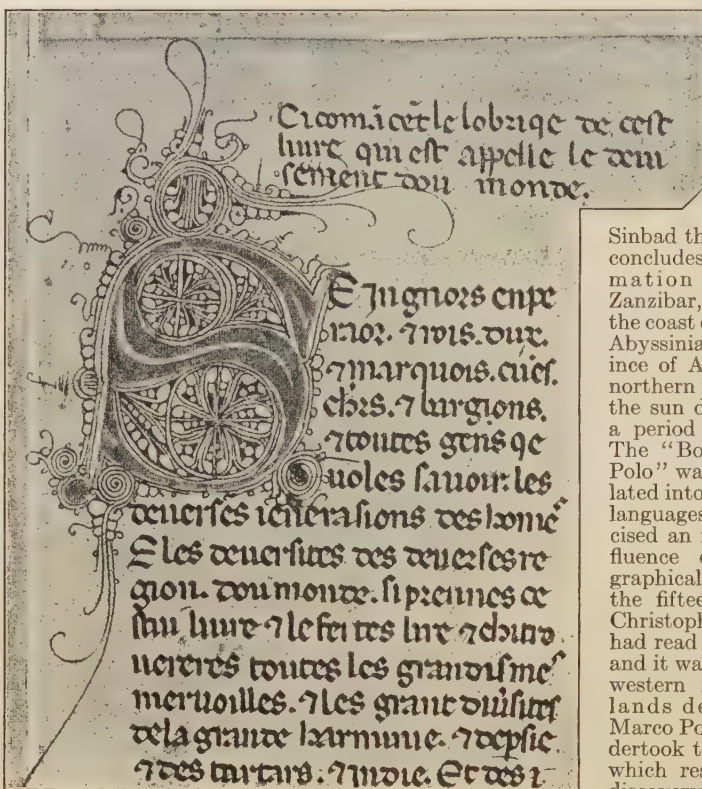 Ci comācēt le lobriqe de cest
liure qui est appelle le deui
sement dou monde.
SEingnors enpe
raor. ⁊ rois. dux.
⁊ marquois. cuēs.
chrs. ⁊ bargions.
⁊ toutes gens qe
uoles sauoir. les
deuerses ienerasions des homēs
E les deuersites des deuerses re
gion. dou monde. si prennes ce
stui liure ⁊ le feites lire ⁊ chi trou
uereres toutes les grandismes
meruoilles. ⁊ les grant diuersites
de la grande harminie. ⁊ de psie.
⁊ des tartars. ⁊ indie. Et des i
Sinbad th
concludes
mation
Zanzibar,
the coast o
Abyssinia
ince of A
northern
the sun d
a period
The “Bo
Polo” wa
lated into
languages
cised an i
fluence o
graphical
the fiftee
Christoph
had read
and it wa
western
lands de
Marco Po
dertook t
which res